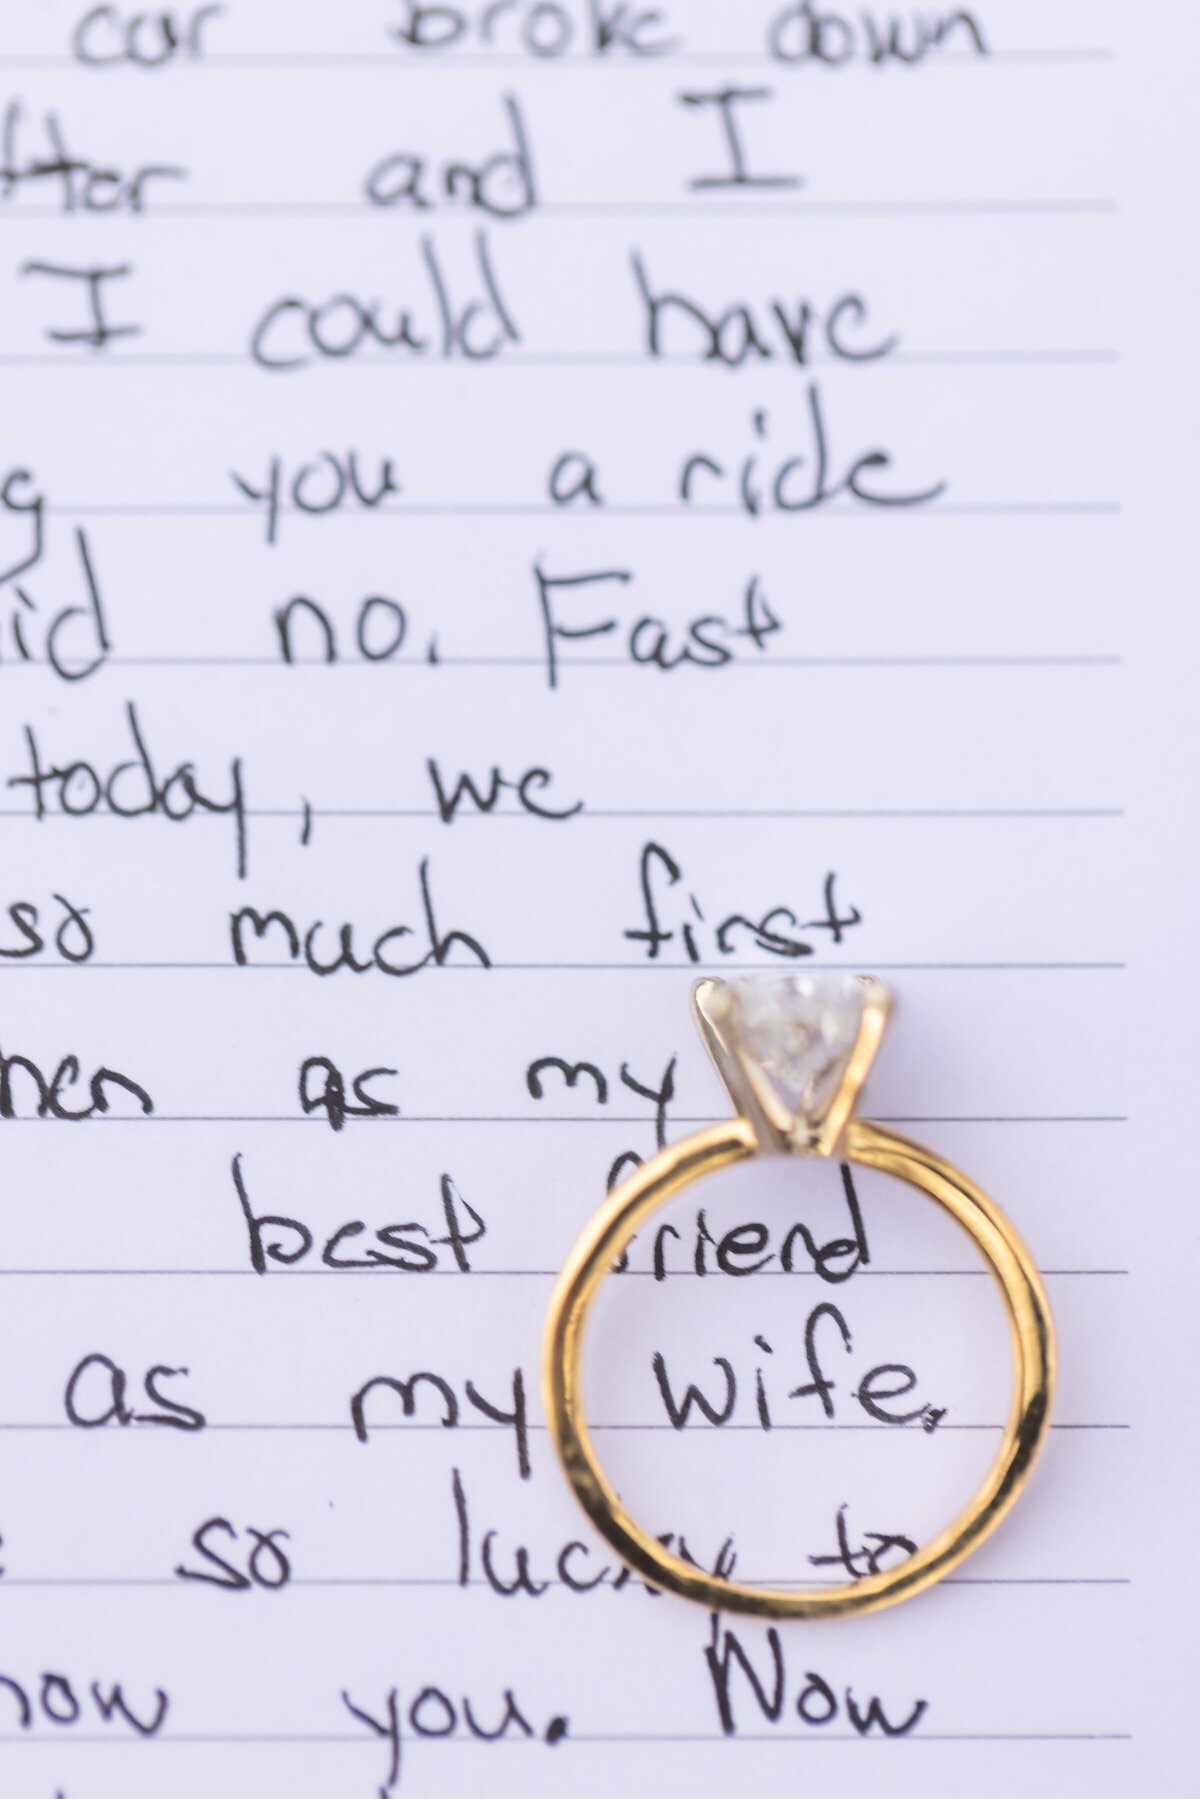 car broke down
and I
I could have
you a ride
no. Fast
today, we
so much first
as my
best friend
as my wife.
so lucky to
you. Now